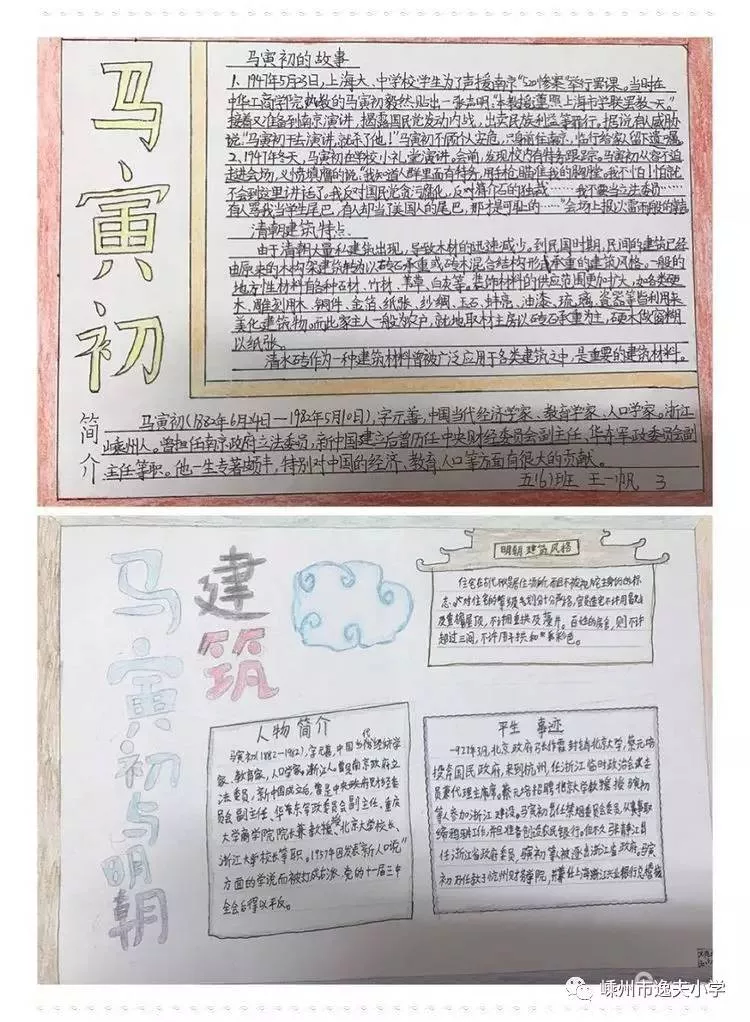 马寅初
马寅初的故事
1、1947年5月23日,上海大、中学校学生为了声援南京“520惨案”举行罢课。当时在
中华工商学院执教的马寅初毅然贴出一张声明,“本教授遵照上海市学联罢教一天。”
接着又准备到南京演讲,揭露国民党发动内战,出卖民族利益等罪行。据说有人威胁
说“马寅初干去演讲,就杀了他!”马寅初不顾个人安危,只身前往南京,临行给家人留下遗嘱。
2、1947年冬天,马寅初在学校小礼堂演讲。会前,发现校内有特务跟踪。马寅初从容不迫
走进会场,义愤填膺的说,“我知道人群里面有特务,用手枪瞄准我的胸膛。我不怕!怕就
不会到这里讲话了。我反对国民党贪污腐化,反对蒋介石的独裁……我不要当立法委员……
有人骂我当学生尾巴,有人却当了美国人的尾巴,那才是可耻的……”会场上报以雷雨般的掌声
清朝建筑特点
由于清朝大量私建筑出现,导致木材的迅速减少。到民国时期,民间的建筑已经
由原来的木构架建筑转为以砖石承重或砖木混合结构形式承重的建筑风格。一般的
地方性材料有各种石材、竹材、草、白灰等。装饰材料的供应范围更加扩大,如各类硬
木、雕刻用木、铜件、金箔、纸张、纱绸、玉石、蚌壳、油漆、琉璃、瓷器等皆利用来
美化建筑物。而此家主人一般为农户,就地取材主房以砖石承重为主,硬木做窗糊
以纸张。
清水砖作为一种建筑材料曾被广泛应用于各类建筑之中,是重要的建筑材料。
简介
马寅初(1882年6月24日—1982年5月10日),字元善,中国当代经济学家、教育学家、人口学家。浙江
嵊州人。曾担任南京政府立法委员,新中国建立后曾历任中央财经委员会副主任、华东军政委员会副
主任等职。他一生专著颇丰,特别对中国的经济、教育、人口等方面有很大的贡献。
五(6)班 王一帆 3
马寅初与明朝
建筑
明朝建筑风格
住宅在古代
标
志。
及重檐屋顶,不许用重拱及藻井。百姓的房舍,则不许
超过三间,不许用斗拱和彩色。
人物简介
马寅初(1882-1982),字元善,中国当代经济学
家、教育家,人口学家。浙江人。曾员南京政府立
法委员,新中国成立后,曾是中央政府财经委
员会副主任、华东军政委员会副主任,重庆
大学商学院院长兼教授,北京大学校长、
浙江大学校长等职。1957年因发表“新人口论”
方面的学说而被打成右派,党的十一届三中
全会后得以平反。
平生事迹
一927年3月,北京政府张作霖封锁北京大学,蔡元培
投奔国民政府,来到杭州,任浙江临时政治会议委
员兼代理主席。蔡元培招聘北京大学教授马寅初
等人参加浙江建设。马寅初曾任禁烟委员会委员,从事
缉私工作,并且准备创设农民银行。但不久张静江自
任浙江省政府委员,马寅初等人被逐出浙江省政府。马寅
初乃任教于杭州财务学院,并兼任上海浙江兴业银行总稽核
嵊州市逸夫小学